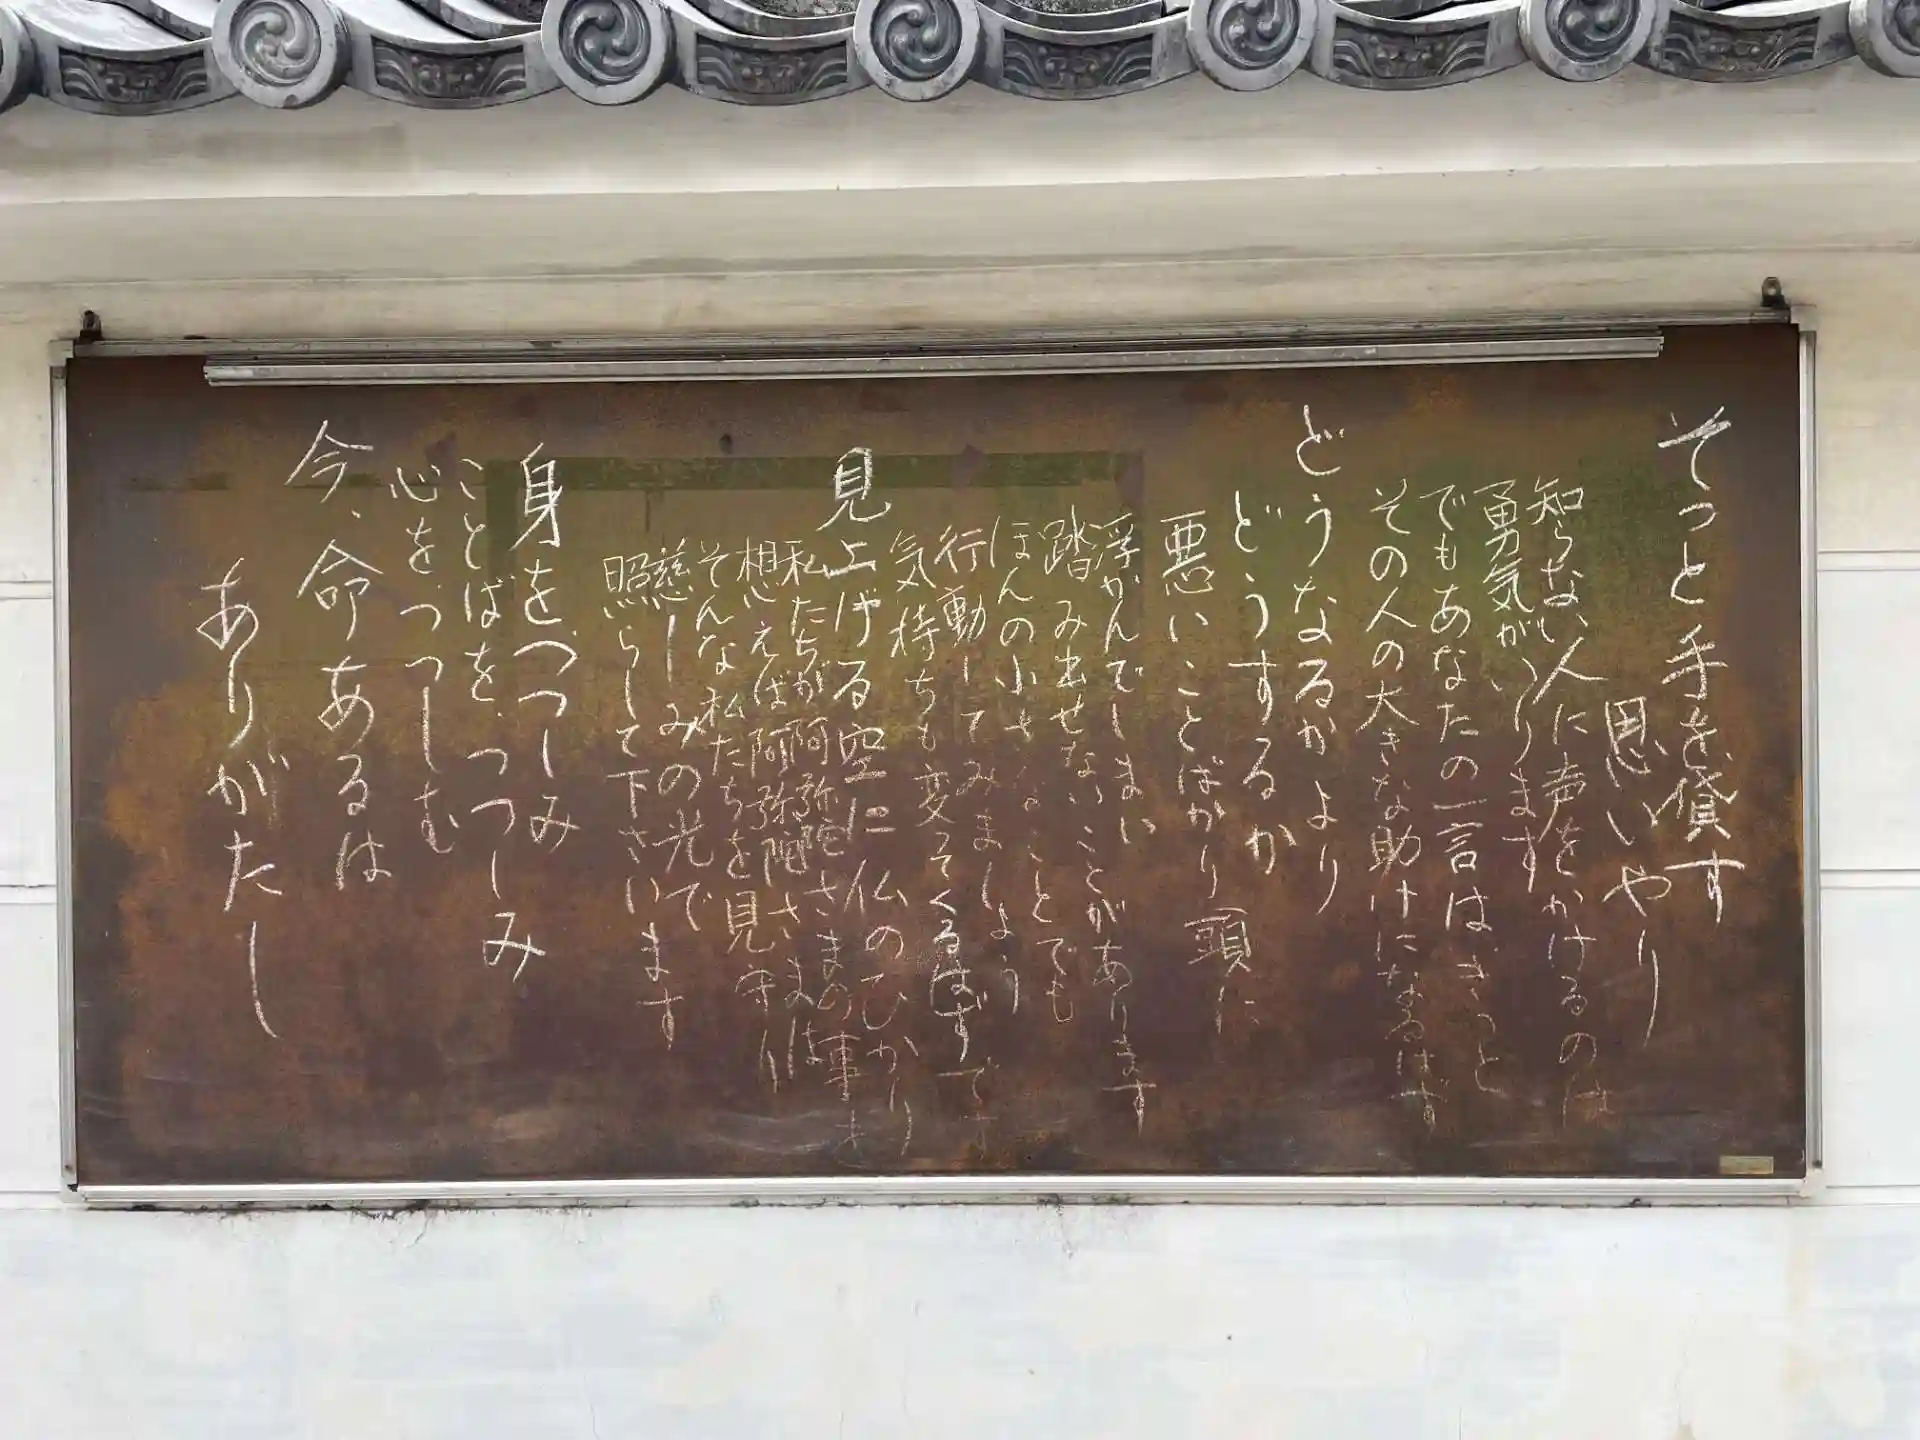 そっと手を貸す
思いやり
知らない人に声をかけるのは
勇気がいります
でもあなたの一言は、きっと
その人の大きな助けになるはず
どうなるかより
どうするか
悪いことばかり頭に
浮かんでしまい
踏み出せないことがあります
ほんの小さなことでも
行動してみましょう
気持ちも変ってくるはずです
見上げる空に仏のひかり
私たちが阿弥陀さまの事を
想えば阿弥陀さまは
そんな私たちを見守り
慈しみの光で
照らして下さいます
身をつつしみ
ことばを、つつしみ
心を、つつしむ
今、命あるは
ありがたし